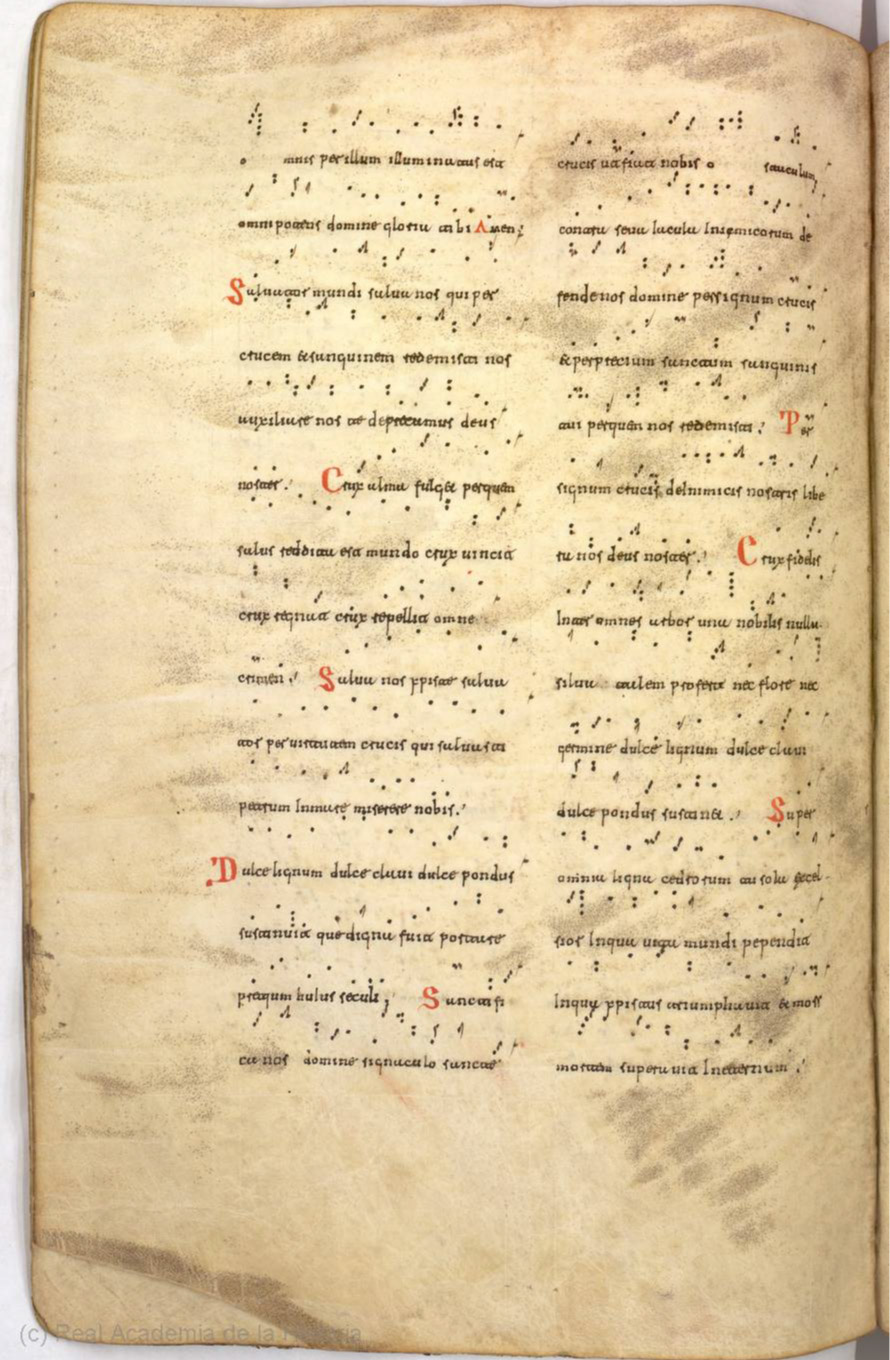 o mnis per illum illuminatus est
omnipotens domine gloria tibi Amen;
Saluator mundi salua nos qui per
crucem & sanguinem redemisti nos
auxiliare nos te deprecamur deus
noster. Crux alma fulget per quem
salus reddita est mundo crux uincit
crux regnat crux repellit omne
crimen. Salua nos xpiste salua
tor per uirtutem crucis qui saluasti
petrum Inmare miserere nobis.
Dulce lignum dulce claui dulce pondus
sustinuit que digna fuit portare
pretium huius seculi; Sanctifi
ca nos domine signaculo sancte
crucis ut fiat nobis o staculum
contra seua Iacula Inimicorum de
fende nos domine per signum crucis
& per precium sanctum sanguinis
tui per quem nos redemisti. Per
signum crucis deInimicis nostris libe
ra nos deus noster. Crux fidelis
Inter omnes arbor una nobilis nulla
silua talem profert nec flore nec
germine dulce lignum dulce claui
dulce pondus sustinet. Super
omnia ligna cedrorum tu sola excel
sior Inqua uita mundi pependit
Inqua xpistus triumphauit & mors
mortem superauit Ineternum.
(c) Real Academia de la Historia